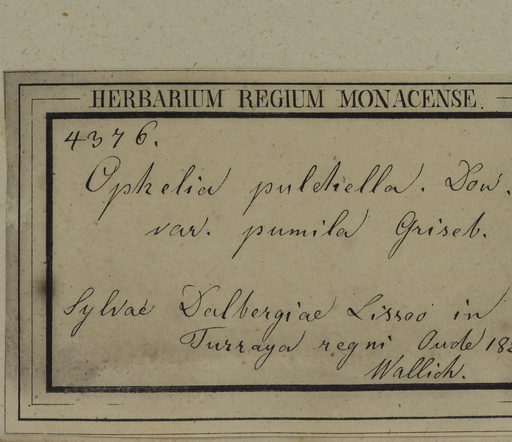 HERBARIUM REGIUM MONACENSE.
4376.
Ophelia pulchella. Don.
var. pumila Griseb.
Sylvae Dalbergiae Lissoo in
Turraya regni Oude 18
Wallich.